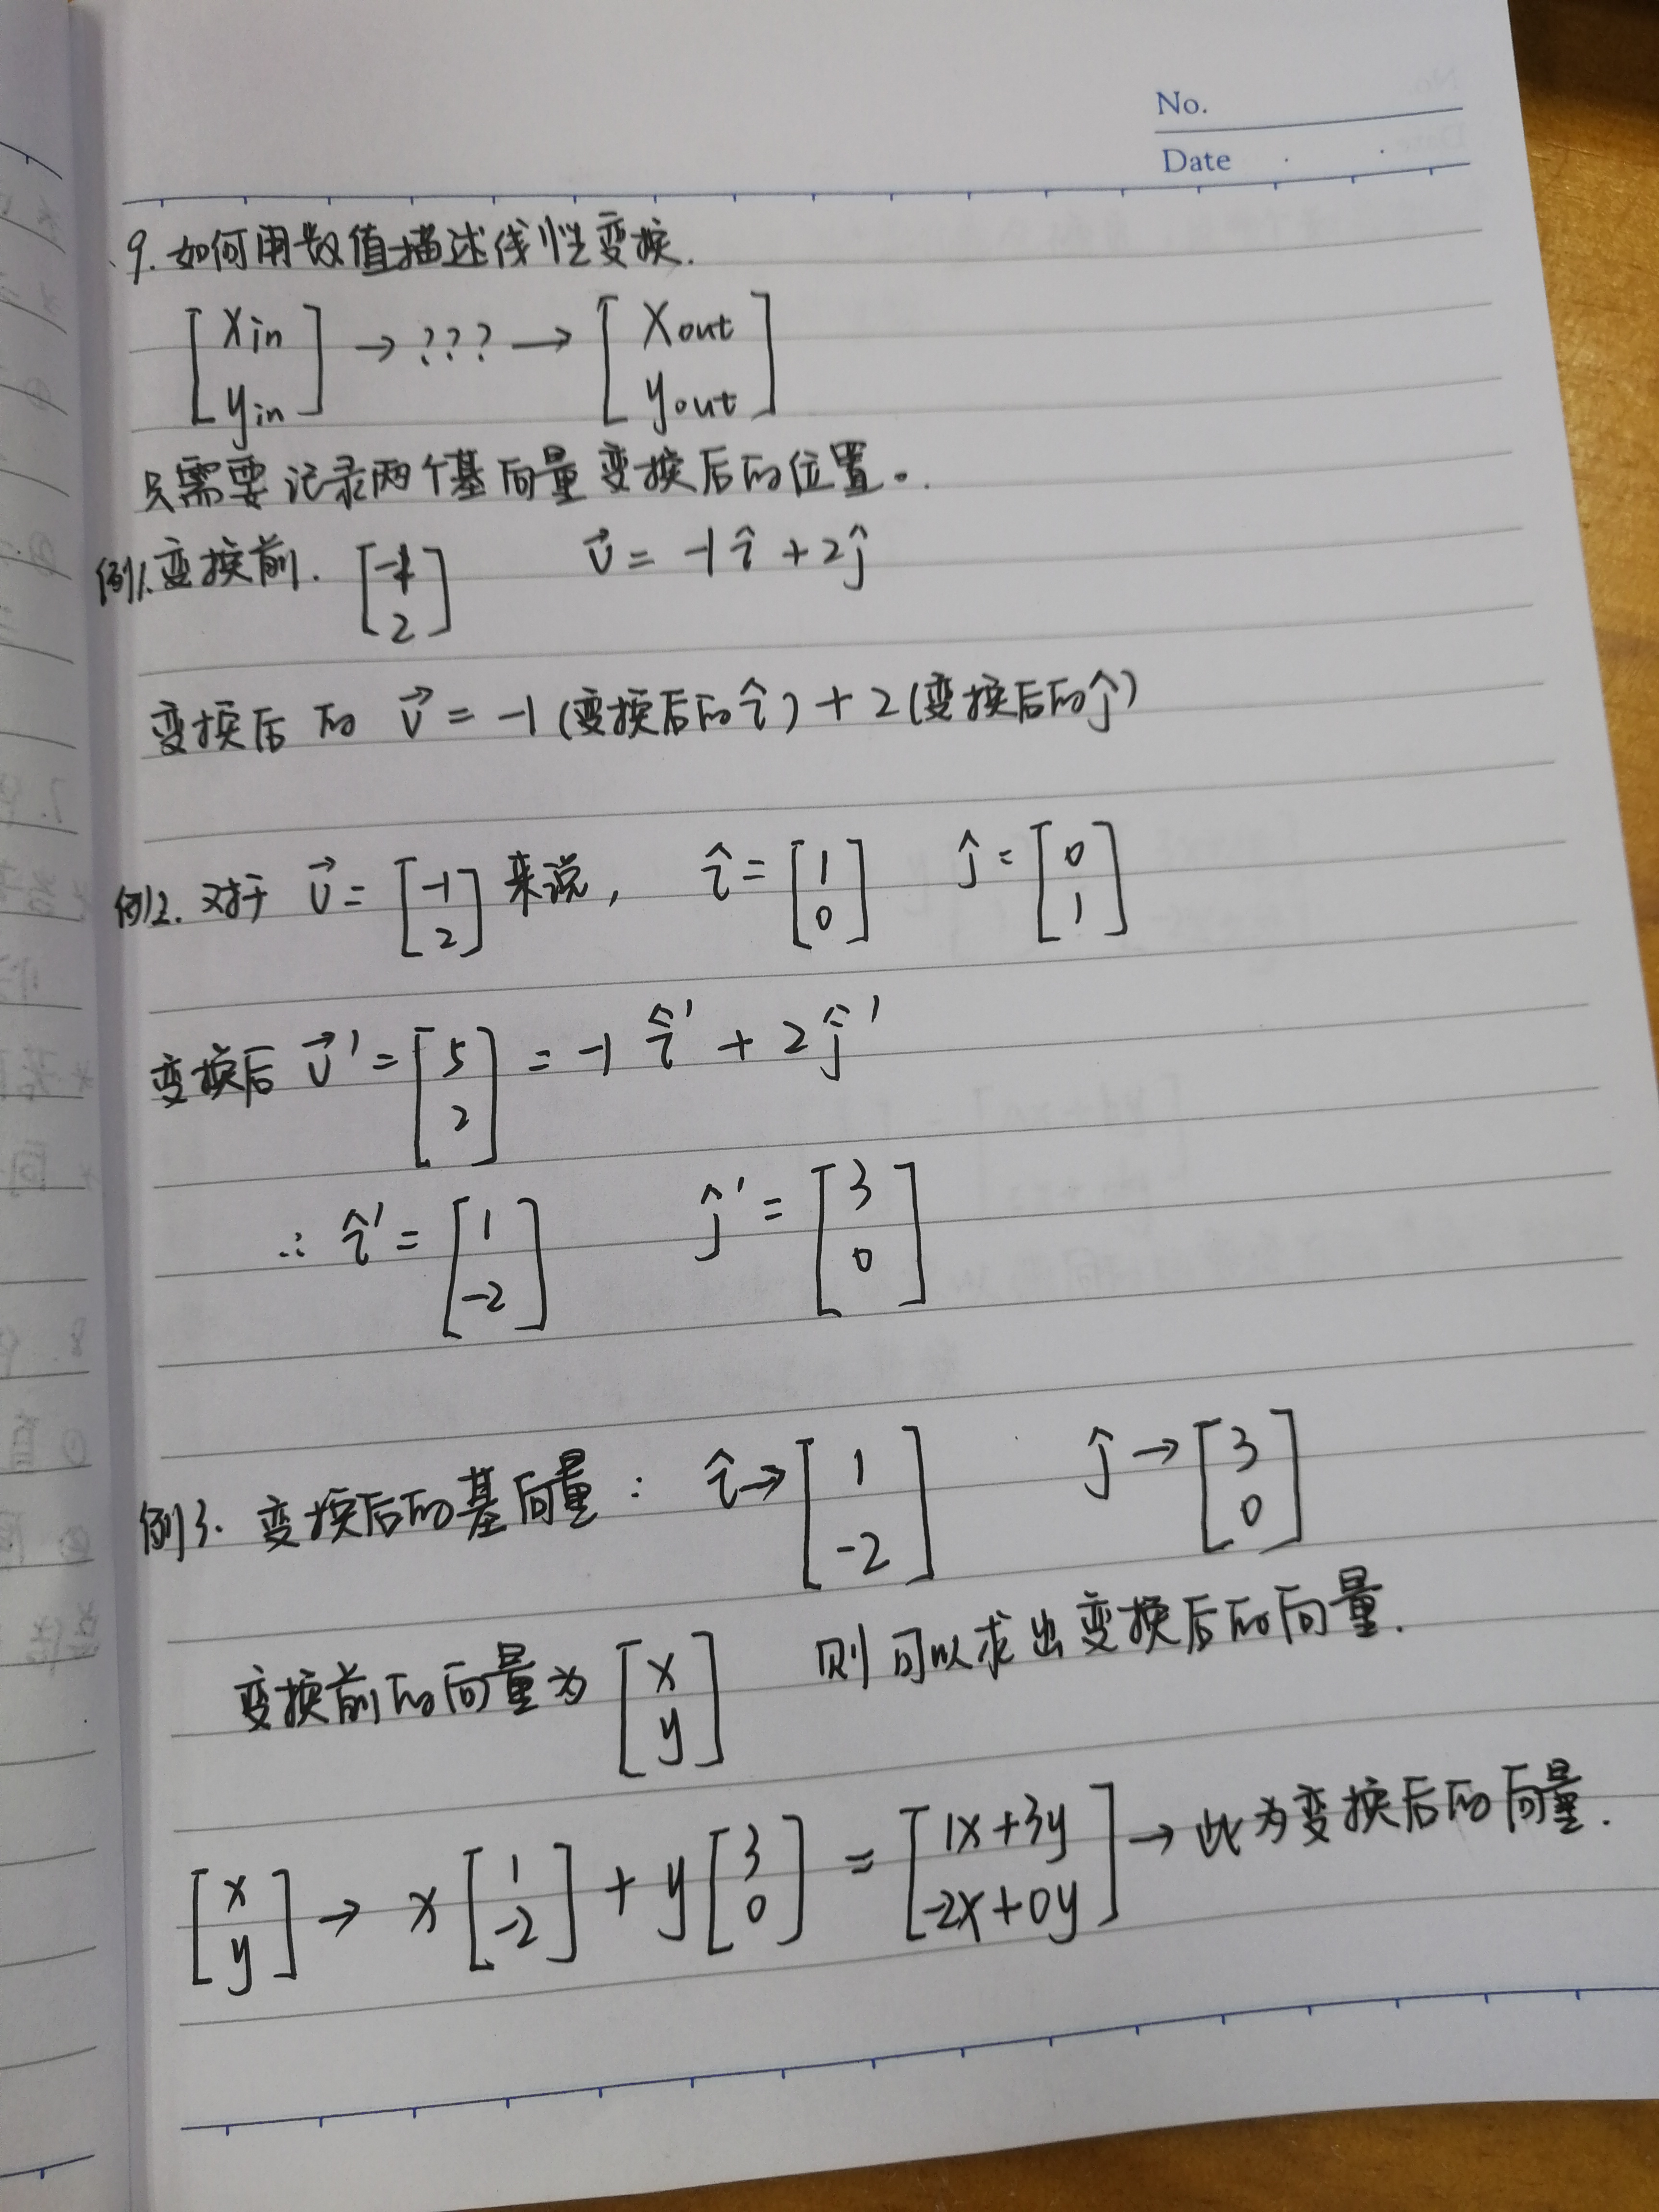 No.
Date
9. 如何用数值描述线性变换.
[xin yin] → ??? → [xout yout]
只需要记录两个基向量变换后的位置。
例1. 变换前. [-1 2] v⃗ = -1î + 2ĵ
变换后的 v⃗ = -1(变换后的î) + 2(变换后的ĵ)
例2. 对于 v⃗ = [-1 2] 来说, î = [1 0] ĵ = [0 1]
变换后 v⃗' = [5 2] = -1 î' + 2 ĵ'
∴ î' = [1 -2] ĵ' = [3 0]
例3. 变换后的基向量: î → [1 -2] ĵ → [3 0]
变换前的向量为 [x y] 则可以求出变换后的向量.
[x y] → x [1 -2] + y [3 0] = [1x+3y -2x+0y] → 此为变换后的向量.